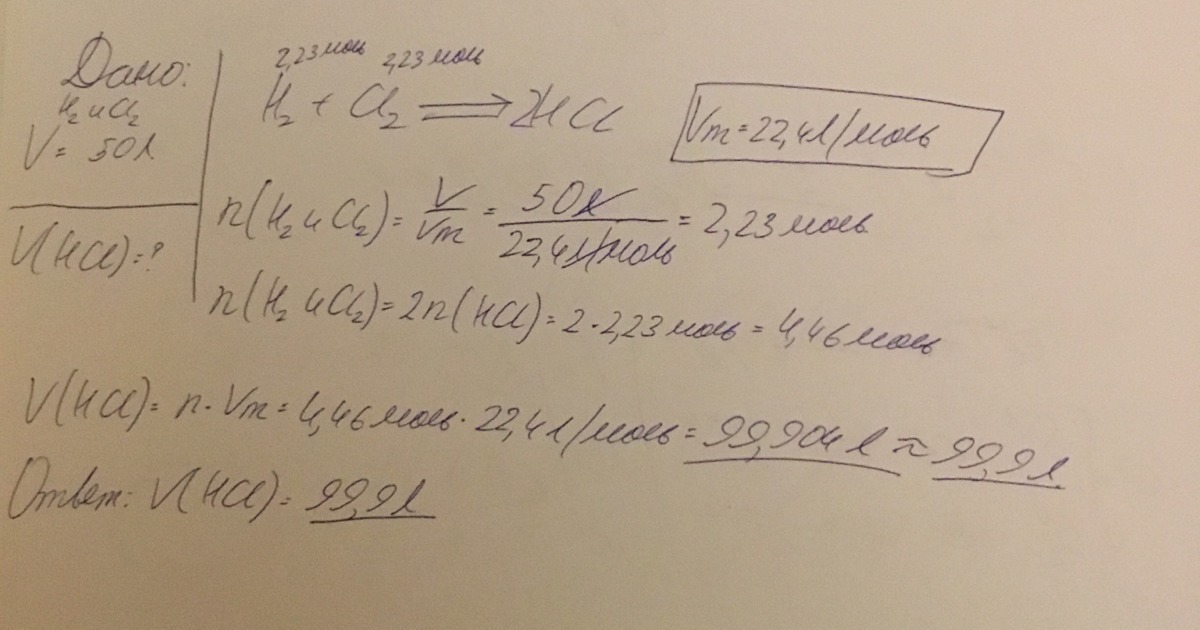 Дано:
H₂ и Cl₂
V = 50 л
V(HCl) = ?
2,23 моль 2,23 моль
H₂ + Cl₂ ⟹ 2HCl
Vm = 22,4 л/моль
n(H₂ и Cl₂) = V/Vm = 50 л / 22,4 л/моль = 2,23 моль
n(H₂ и Cl₂) = 2n(HCl) = 2 · 2,23 моль = 4,46 моль
V(HCl) = n · Vm = 4,46 моль · 22,4 л/моль = 99,904 л ≈ 99,9 л
Ответ: V(HCl) = 99,9 л